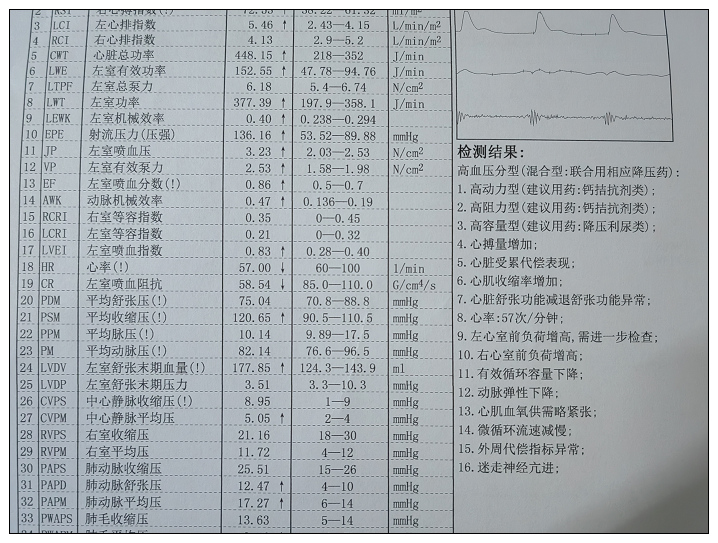 2 RSI 右心搏指数(!) 72.33 ↑ 38.22—61.32 ml/m²
3 LCI 左心排指数 5.46 ↑ 2.43—4.15 L/min/m²
4 RCI 右心排指数 4.13 2.9—5.2 L/min/m²
5 CWT 心脏总功率 448.15 ↑ 218—352 J/min
6 LWE 左室有效功率 152.55 ↑ 47.78—94.76 J/min
7 LTPF 左室总泵力 6.18 5.4—6.74 N/cm²
8 LWT 左室功率 377.39 ↑ 197.9—358.1 J/min
9 LEWK 左室机械效率 0.40 ↑ 0.238—0.294
10 EPE 射流压力(压强) 136.16 ↑ 53.52—89.88 mmHg
11 JP 左室喷血压 3.23 ↑ 2.03—2.53 N/cm²
12 VP 左室有效泵力 2.53 ↑ 1.58—1.98 N/cm²
13 EF 左室喷血分数(!) 0.86 ↑ 0.5—0.7
14 AWK 动脉机械效率 0.47 ↑ 0.136—0.19
15 RCRI 右室等容指数 0.35 0—0.45
16 LCRI 左室等容指数 0.21 0—0.32
17 LVEI 左室喷血指数 0.83 ↑ 0.28—0.40
18 HR 心率(!) 57.00 ↓ 60—100 1/min
19 CR 左室喷血阻抗 58.54 ↓ 85.0—110.0 G/cm⁴/s
20 PDM 平均舒张压(!) 75.04 70.8—88.8 mmHg
21 PSM 平均收缩压(!) 120.65 ↑ 90.5—110.5 mmHg
22 PPM 平均脉压(!) 10.14 9.89—17.5 mmHg
23 PM 平均动脉压(!) 82.14 76.6—96.5 mmHg
24 LVDV 左室舒张末期血量(!) 177.85 ↑ 124.3—143.9 ml
25 LVDP 左室舒张末期压力 3.51 3.3—10.3 mmHg
26 CVPS 中心静脉收缩压(!) 8.95 1—9 mmHg
27 CVPM 中心静脉平均压 5.05 ↑ 2—4 mmHg
28 RVPS 右室收缩压 21.16 18—30 mmHg
29 RVPM 右室平均压 11.72 4—12 mmHg
30 PAPS 肺动脉收缩压 25.51 15—26 mmHg
31 PAPD 肺动脉舒张压 12.47 ↑ 4—10 mmHg
32 PAPM 肺动脉平均压 17.27 ↑ 6—14 mmHg
33 PWAPS 肺毛收缩压 13.63 5—14 mmHg
检测结果:
高血压分型(混合型:联合用相应降压药):
1.高动力型(建议用药:钙拮抗剂类);
2.高阻力型(建议用药:钙拮抗剂类);
3.高容量型(建议用药:降压利尿类);
4.心搏量增加;
5.心脏受累代偿表现;
6.心肌收缩率增加;
7.心脏舒张功能减退舒张功能异常;
8.心率:57次/分钟;
9.左心室前负荷增高,需进一步检查;
10.右心室前负荷增高;
11.有效循环容量下降;
12.动脉弹性下降;
13.心肌血氧供需略紧张;
14.微循环流速减慢;
15.外周代偿指标异常;
16.迷走神经亢进;